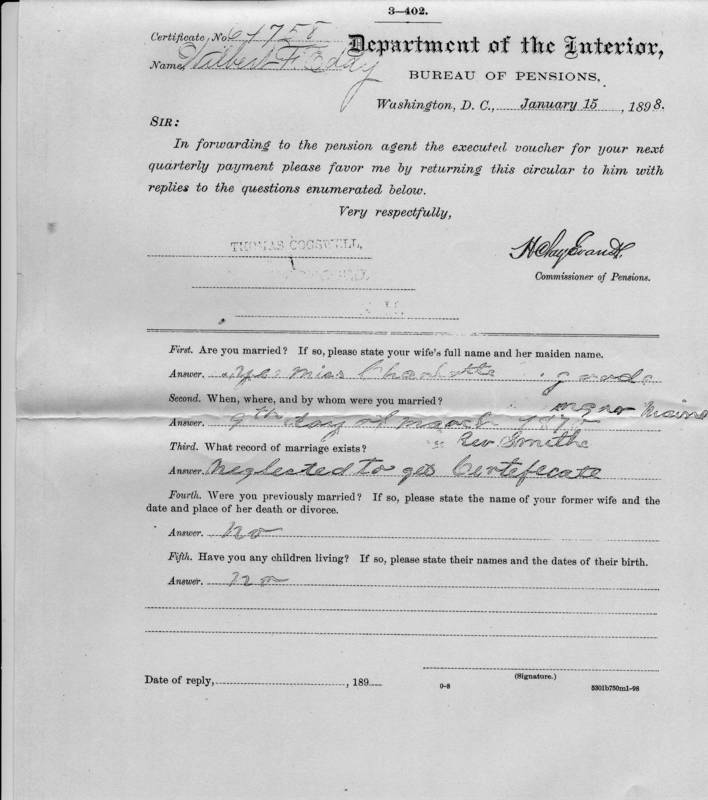 3—402.
Certificate No. 61758
Department of the Interior,
Name, Wilbert F. Eddy
BUREAU OF PENSIONS,
Washington, D. C., January 15, 1898.
SIR:
In forwarding to the pension agent the executed voucher for your next
quarterly payment please favor me by returning this circular to him with
replies to the questions enumerated below.
Very respectfully,
THOMAS COGSWELL,
H Clay Evans
Commissioner of Pensions.
N. H.
First. Are you married? If so, please state your wife's full name and her maiden name.
Answer. Yes Miss Charlotte
Second. When, where, and by whom were you married?
Maine
Answer. 9th day of March
Third. What record of marriage exists? Rev Smith
Answer. Neglected to get Certeficate
Fourth. Were you previously married? If so, please state the name of your former wife and the
date and place of her death or divorce.
Answer. no
Fifth. Have you any children living? If so, please state their names and the dates of their birth.
Answer. no
Date of reply, , 189
(Signature.)
0-8
5301b750m1-98